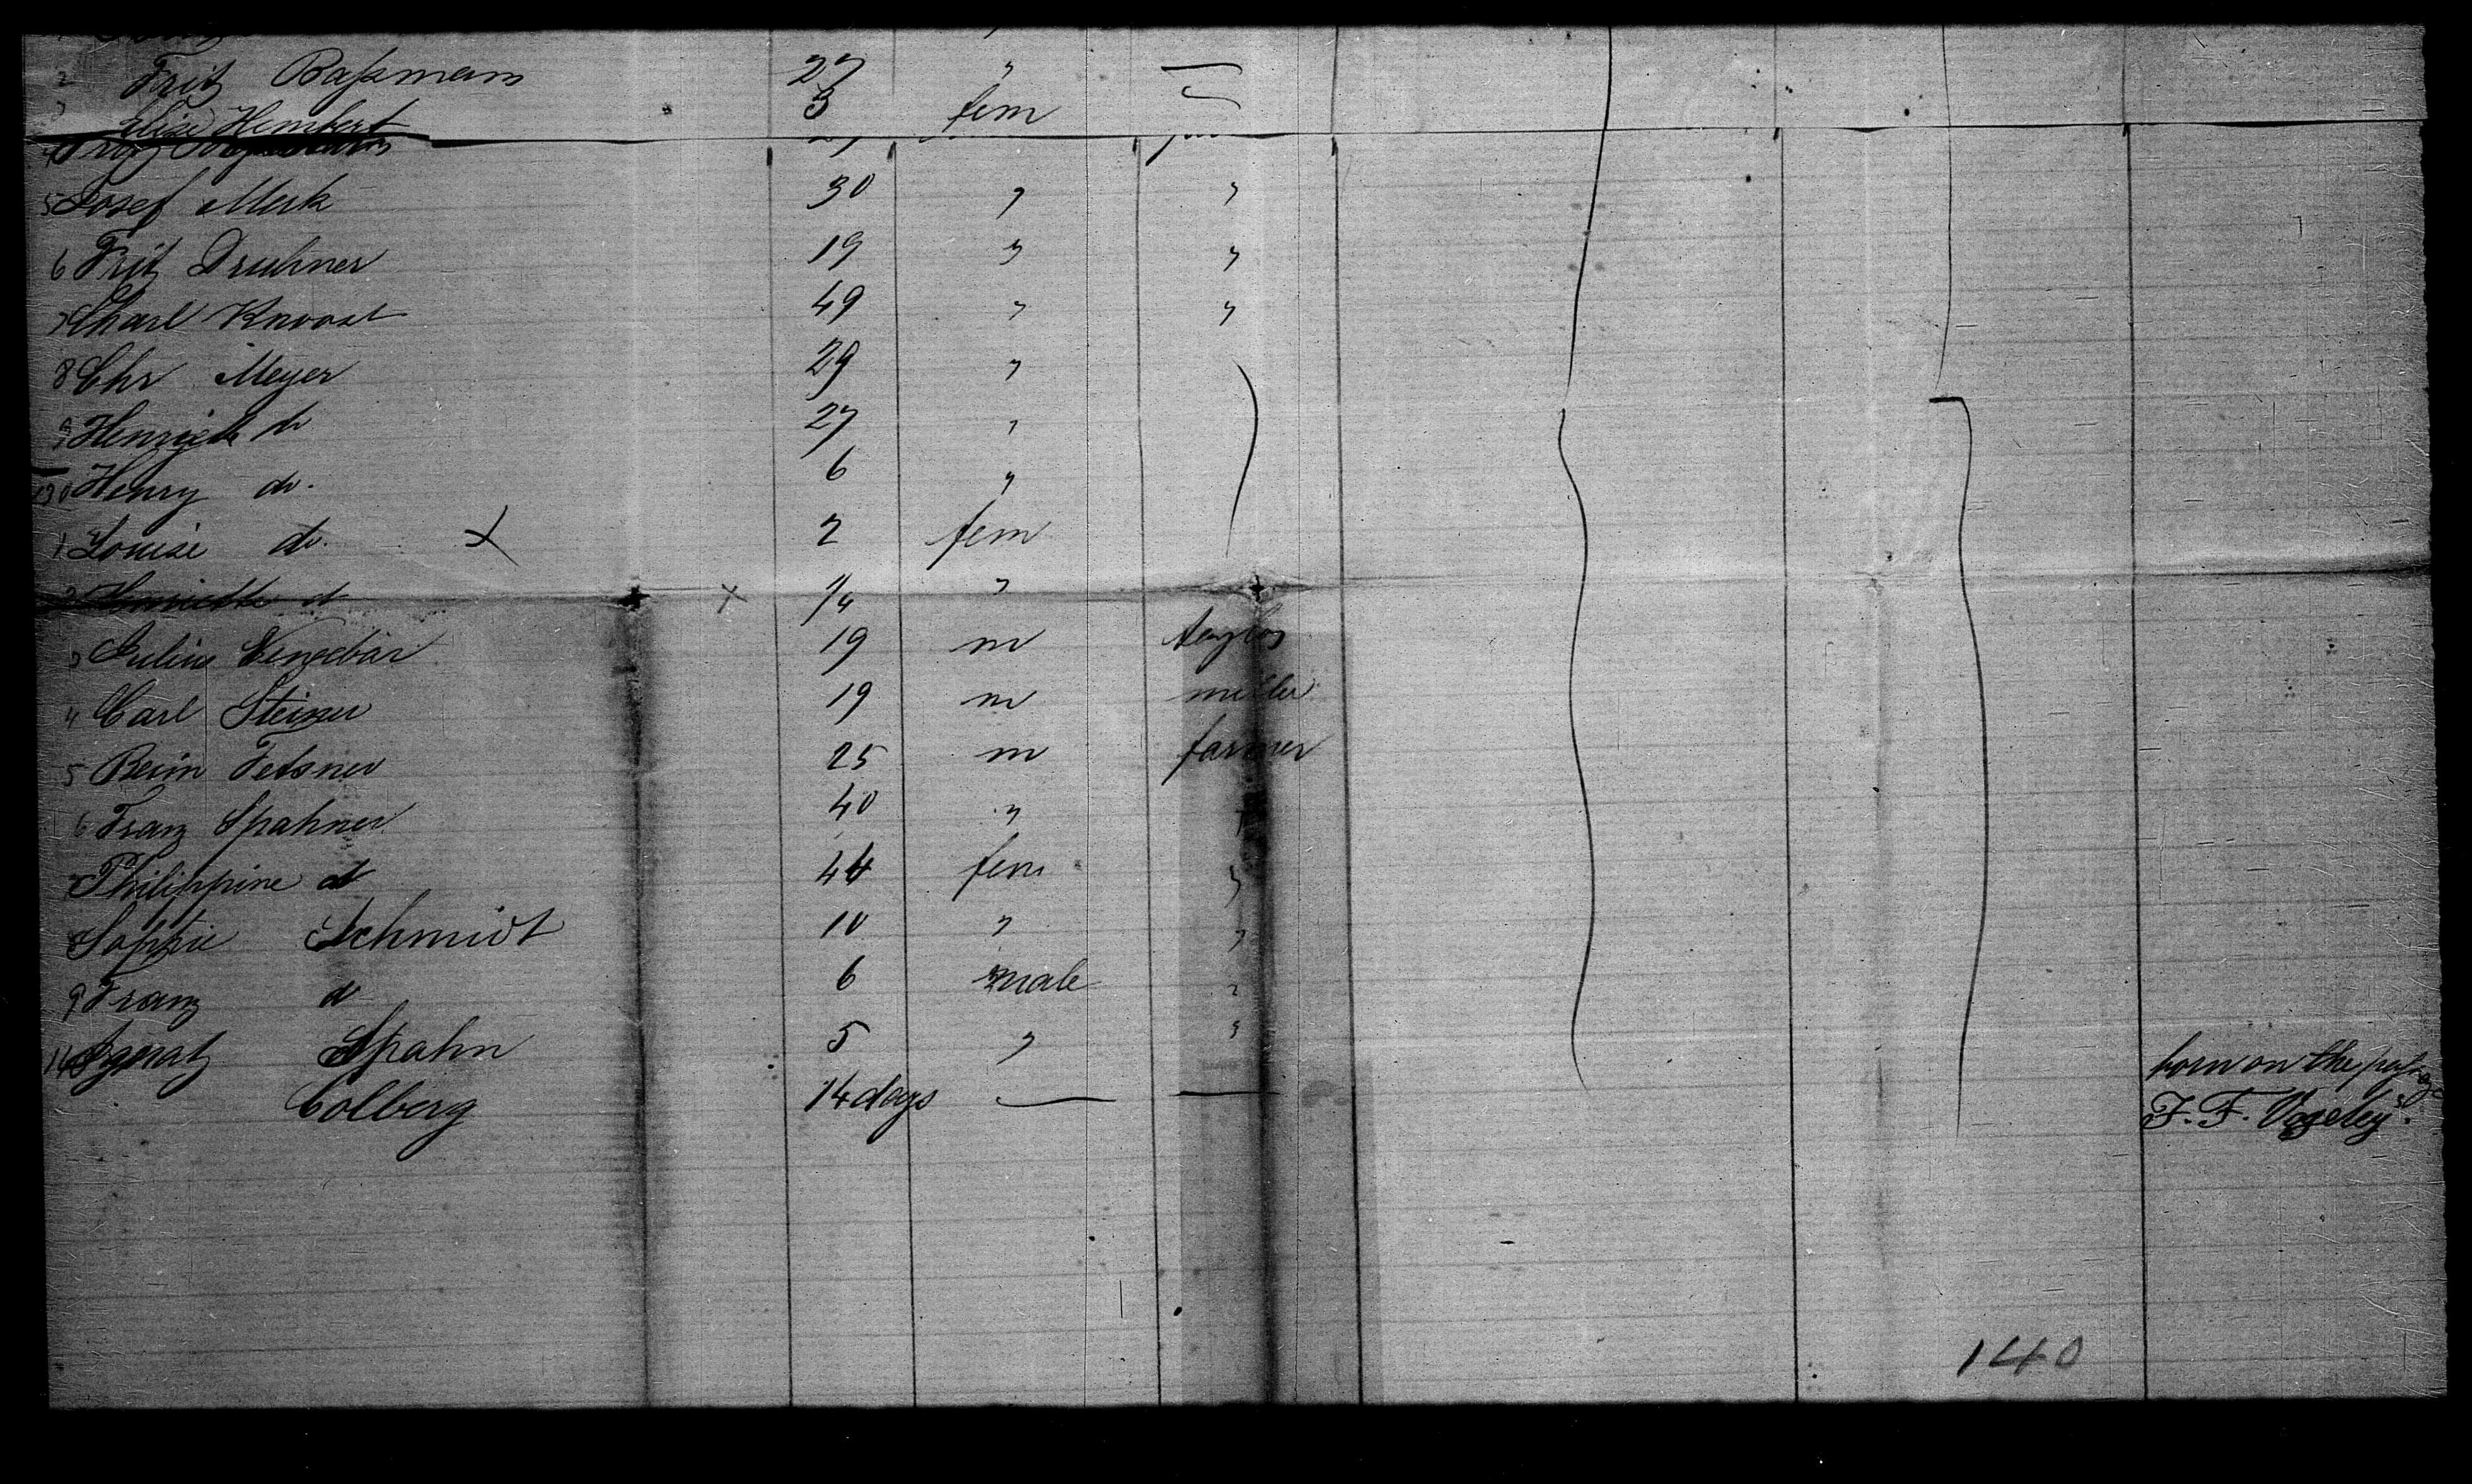 2 Fritz Baßmann 27 "
3 Elise Hembert 3 fem
4 Fritz
5 Josef Merk 30 " "
6 Fritz Druhner 19 " "
7 Charl Knoost 49 " "
8 Chr Meyer 29 "
9 Henriette do 27 "
130 Henry do. 6 "
1 Louise do. 2 fem
2 Henriette do 1/4 "
3 Julius 19 m taylor
4 Carl Steiner 19 m miller
5 Felsner 25 m farmer
6 Franz Spahner 40 " "
7 Philippine do 44 fem "
8 Sophie Schmidt 10 " "
9 Franz do 6 male "
140 Ignatz Spahn 5 " "
Colberg 14 days born on the passage
F. F. Vogeley.
140